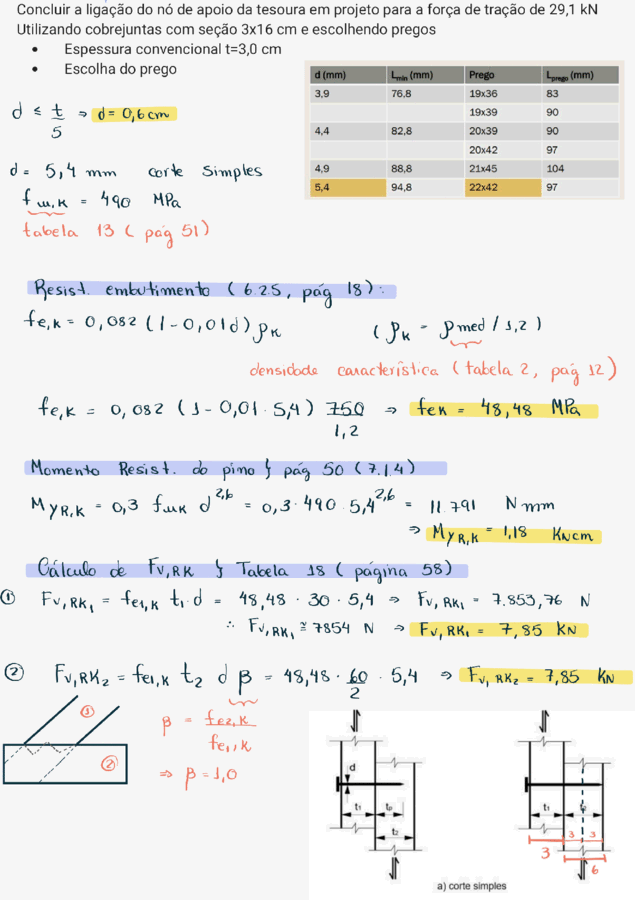 Concluir a ligação do nó de apoio da tesoura em projeto para a força de tração de 29,1 kN
Utilizando cobrejuntas com seção 3x16 cm e escolhendo pregos
• Espessura convencional t=3,0 cm
• Escolha do prego
d (mm) Lmin (mm) Prego Lprego (mm)
3,9 76,8 19x36 83
19x39 90
4,4 82,8 20x39 90
20x42 97
4,9 88,8 21x45 104
5,4 94,8 22x42 97
d ≤ t/5 ⇒ d = 0,6 cm
d = 5,4 mm corte simples
fu,k = 490 MPa
tabela 13 (pág 51)
Resist. embutimento (6.2.5, pág 18):
fe,k = 0,082 (1 - 0,01d) ρk (ρk = ρmed / 1,2)
densidade característica (tabela 2, pág 12)
fe,k = 0,082 (1 - 0,01 · 5,4) 750/1,2 ⇒ fek = 48,48 MPa
Momento Resist. do pino } pág 50 (7.1.4)
MyR,k = 0,3 fuk d^2,6 = 0,3 · 490 · 5,4^2,6 = 11.791 N mm
⇒ MyR,k = 1,18 KNcm
Cálculo de Fv,Rk } Tabela 18 (página 58)
① Fv,Rk1 = fe1,k t1 · d = 48,48 · 30 · 5,4 ⇒ Fv,Rk1 = 7.853,76 N
∴ Fv,Rk1 ≅ 7854 N ⇒ Fv,Rk1 = 7,85 KN
② Fv,Rk2 = fe1,k t2 d β = 48,48 · 60/2 · 5,4 ⇒ Fv,Rk2 = 7,85 KN
① 
②
β = fe2,k/fe1,k
⇒ β = 1,0
d
t1 tp
t2
t1
3 3
3
6
a) corte simples